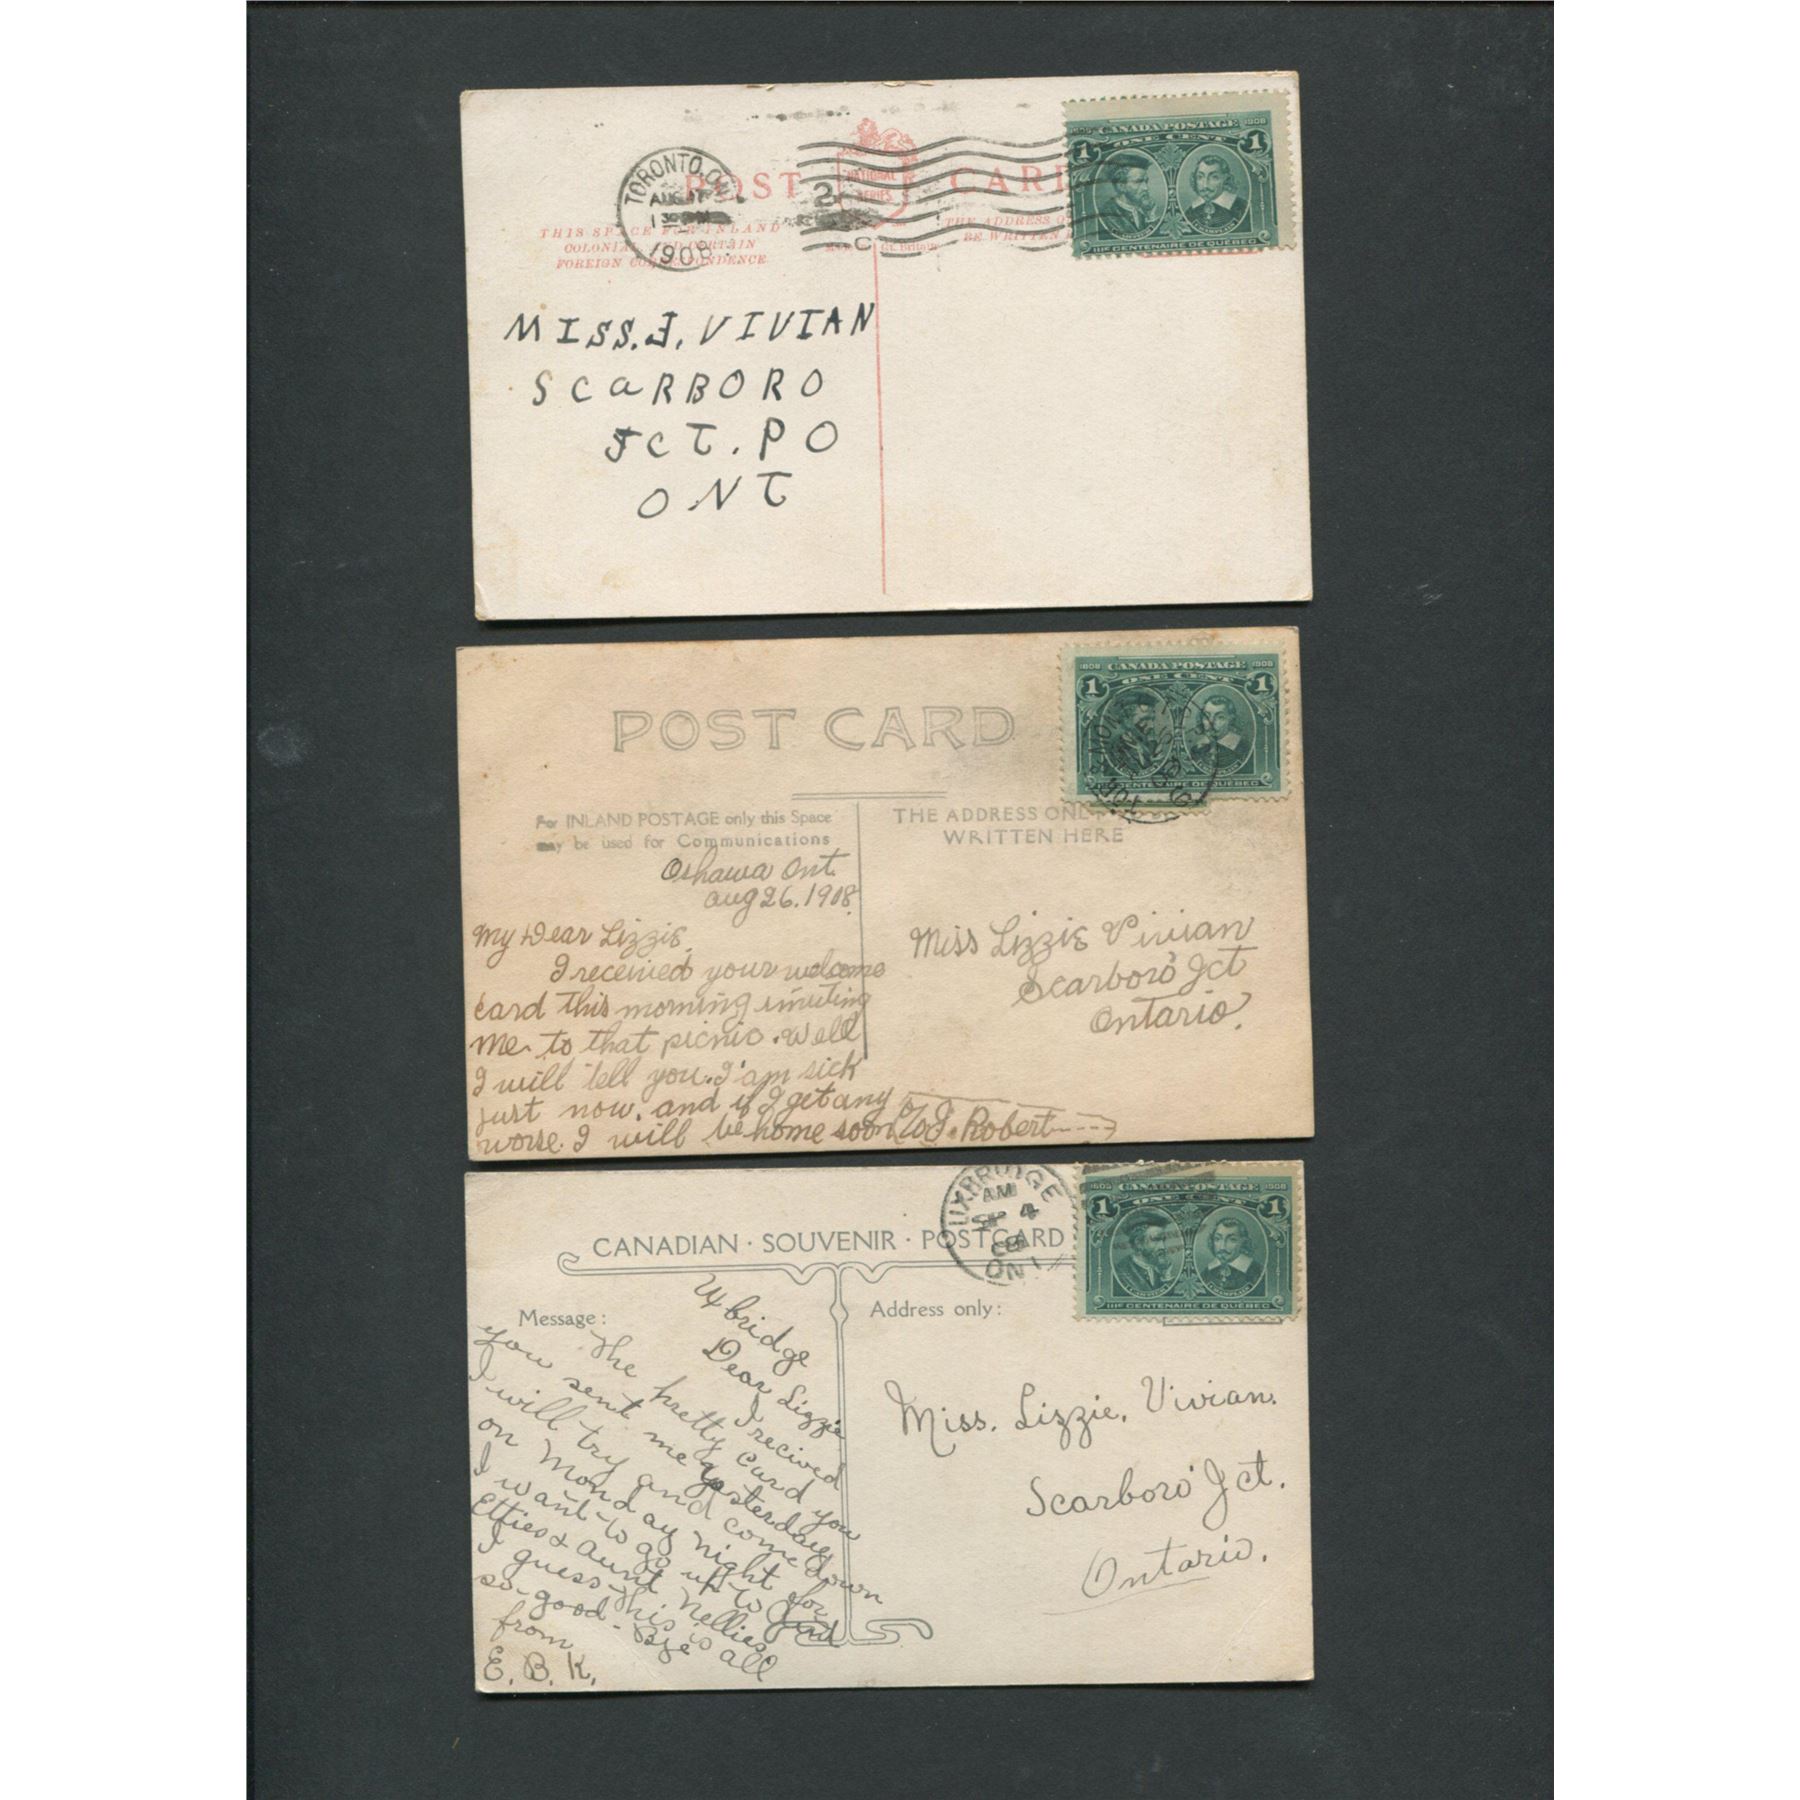 TORONTO, ON
AUG 17
1 30 PM
1908
2
C
POST CARD
NATIONAL
SERIES
THIS SPACE FOR INLAND
COLONIAL AND CERTAIN
FOREIGN CORRESPONDENCE
THE ADDRESS
BE WRITTEN
Gt. Britain
1908
CANADA POSTAGE
ONE CENT
1 1
CHAMPLAIN
IIIE CENTENAIRE DE QUÉBEC
MISS. J. VIVIAN
SCaRBORO
JCT. PO
ONT
POST CARD
1608 CANADA POSTAGE 1908
ONE CENT
1 1
CENTENAIRE DE QUÉBEC
For INLAND POSTAGE only this Space
may be used for Communications
THE ADDRESS ONLY
WRITTEN HERE
Oshawa Ont.
Aug 26. 1908.
My Dear Lizzie,
I received your welcome
card this morning inviting
me to that picnic. Well
I will tell you. I'am sick
just now. and if I get any
worse. I will be home soon c/o J. Robert
Miss Lizzie Vivian
Scarboro Jct
Ontario.
UXBRIDGE
AM
SP 4
08
ONT
1608 CANADA POSTAGE 1908
ONE CENT
1 1
CHAMPLAIN
IIIE CENTENAIRE DE QUÉBEC
CANADIAN · SOUVENIR · POSTCARD
Message:
Address only:
Uxbridge
Dear Lizzie
I recived
the pretty card you
you sent me yesterday
I will try and come down
on Monday night for
I want to go up to
Etties & Aunt Nellies
I guess this is all
so good-Bye
from
E. B. K.
Miss. Lizzie. Vivian.
Scarboro' Jct.
Ontario.